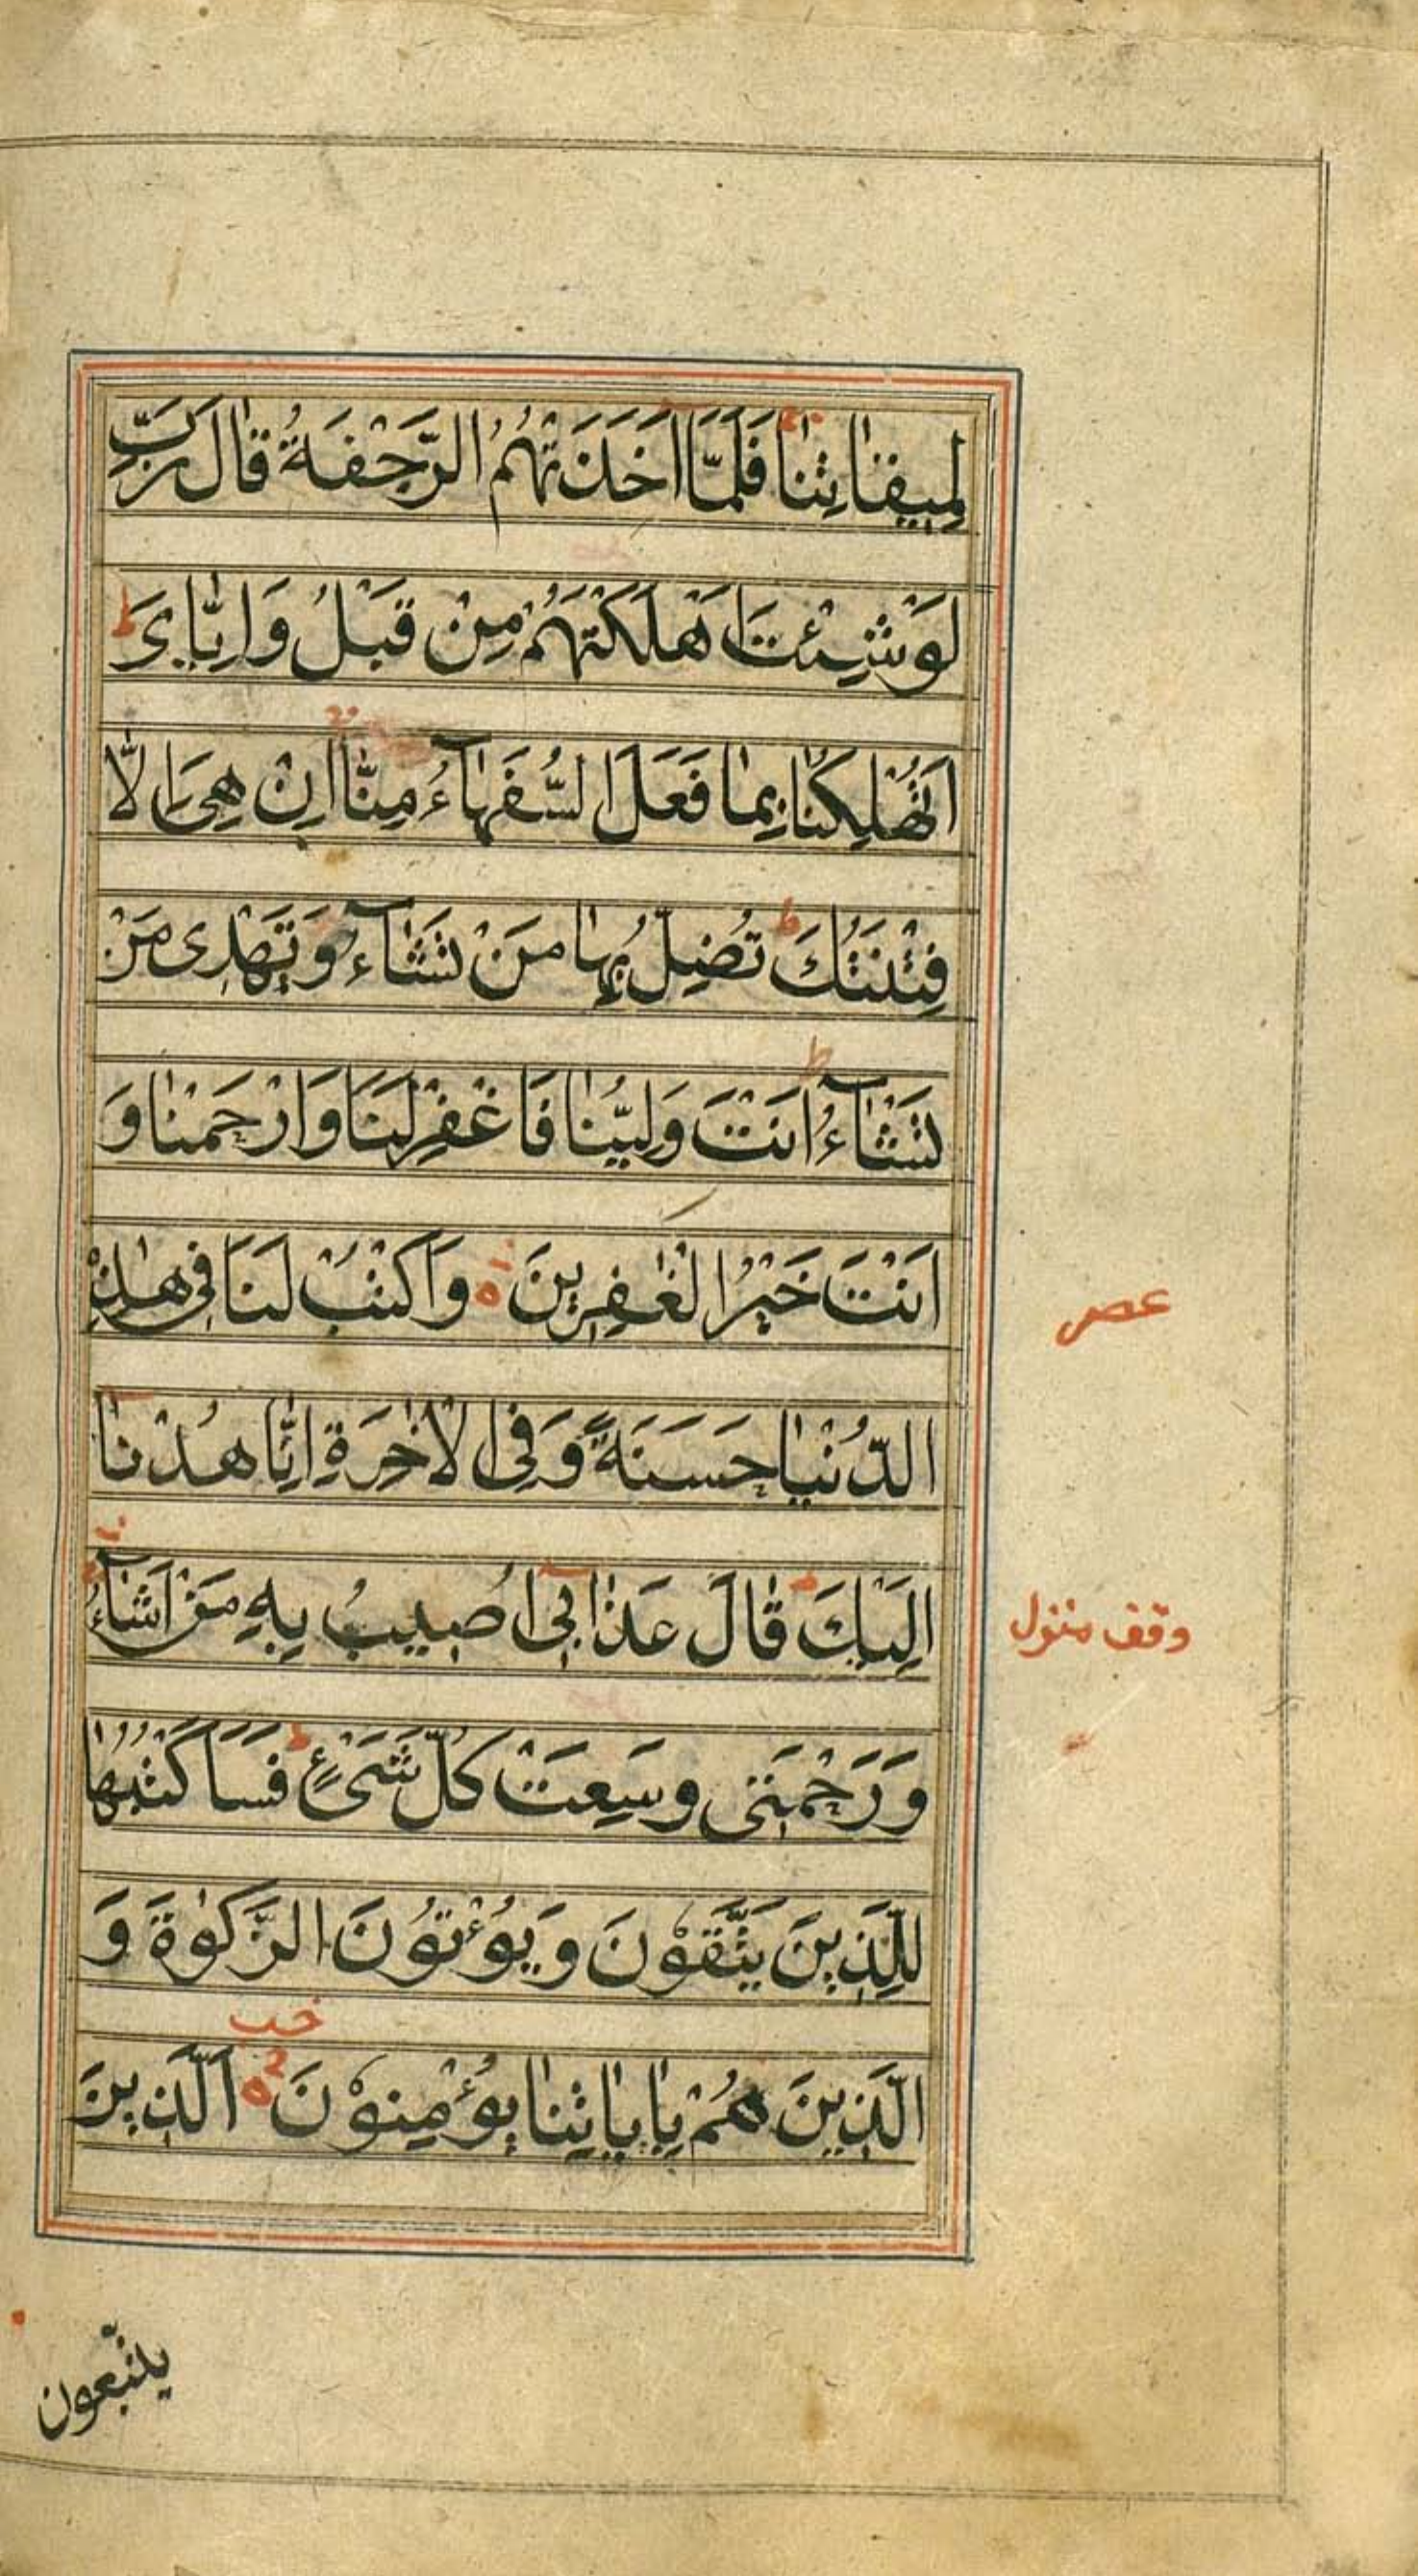 لِمِيقٰاتِنٰا فَلَمَّا اَخَذَتْهُمُ الرَّجْفَةُ قٰالَ رَبِّ
لَوْ شِئْتَ اَهْلَكْتَهُمْ مِنْ قَبْلُ وَاِيّٰايَ ط
اَتُهْلِكُنٰا بِمٰا فَعَلَ السُّفَهٰآءُ مِنّٰا اِنْ هِيَ اِلّٰا
فِتْنَتُكَ ط تُضِلُّ بِهٰا مَنْ تَشٰآءُ وَتَهْدِى مَنْ
تَشٰآءُ ط اَنْتَ وَلِيُّنٰا فَاغْفِرْ لَنَا وَارْحَمْنٰا وَ
اَنْتَ خَيْرُ الْغٰفِرِينَ ه وَاكْتُبْ لَنَا فِى هٰذِهِ
عصر
الدُّنْيٰا حَسَنَةً وَفِى الْاٰخِرَةِ اِنّٰا هُدْنٰا
اِلَيْكَ قٰالَ عَذٰابِى اُصِيبُ بِهِ مَنْ اَشٰآءُ
وقف منزل
وَرَحْمَتِى وَسِعَتْ كُلَّ شَىْءٍ ط فَسَاَكْتُبُهٰا
لِلَّذِينَ يَتَّقُوْنَ وَيُؤْتُوْنَ الزَّكٰوةَ وَ
الَّذِينَ هُمْ بِاٰيٰاتِنٰا يُؤْمِنُوْنَ ه اَلَّذِينَ
يتّبعون